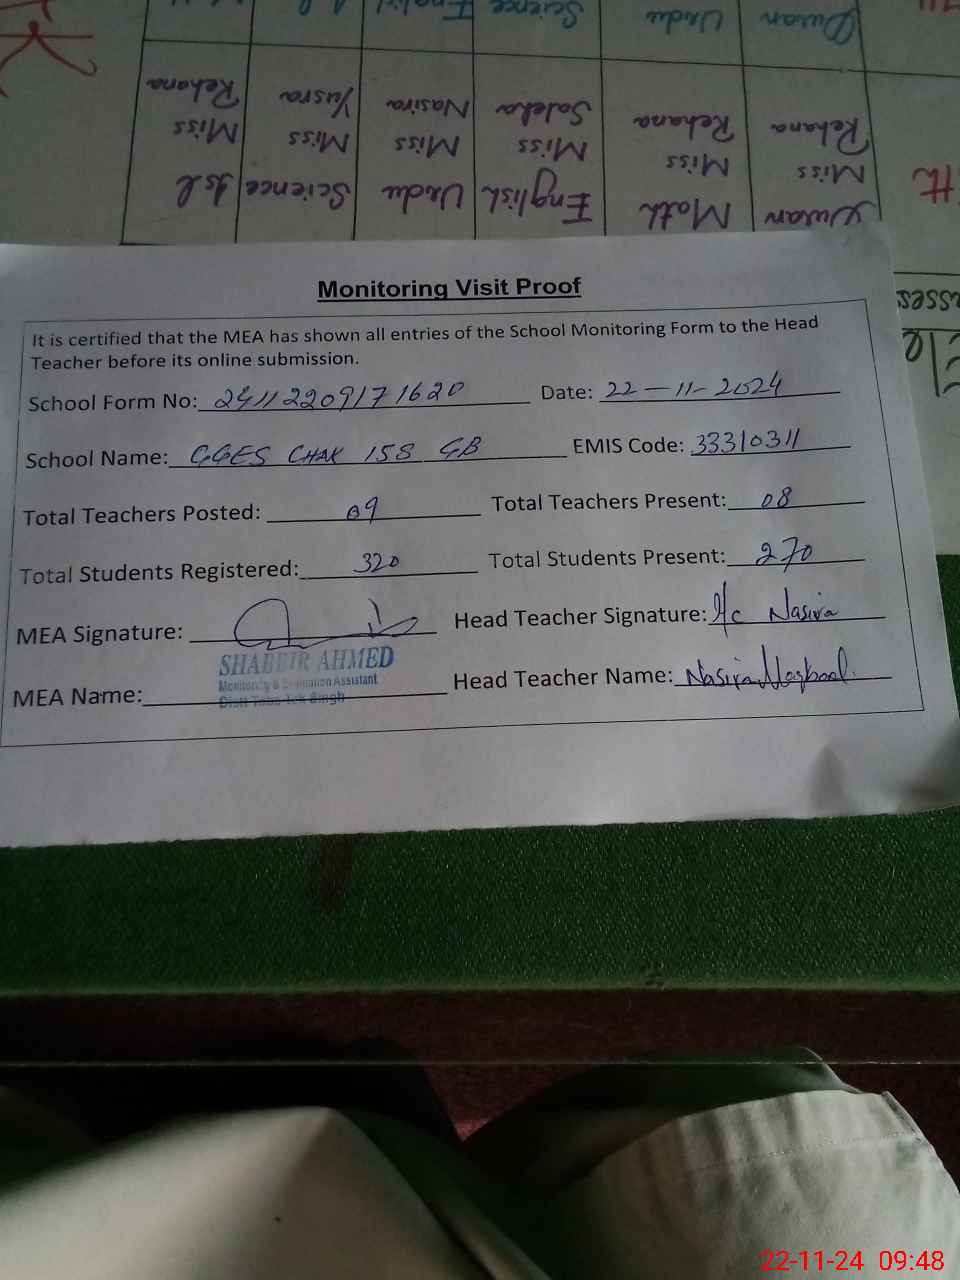 Quran Urdu Science English
Quran Math English Urdu Science Isl
Miss Miss Miss Miss Miss Miss
Rehana Rehana Saleha Nasira Yusra Rehana
Monitoring Visit Proof
It is certified that the MEA has shown all entries of the School Monitoring Form to the Head
Teacher before its online submission.
School Form No: 24112209171620 Date: 22-11-2024
School Name: GGES CHAK 158 GB EMIS Code: 33310311
Total Teachers Posted: 09 Total Teachers Present: 08
Total Students Registered: 320 Total Students Present: 270
MEA Signature: Head Teacher Signature: I/c Nasira
SHABBIR AHMED
Monitoring & Evaluation Assistant
MEA Name: Distt Toba Tek Singh Head Teacher Name: Nasira Maqbool.
22-11-24 09:48